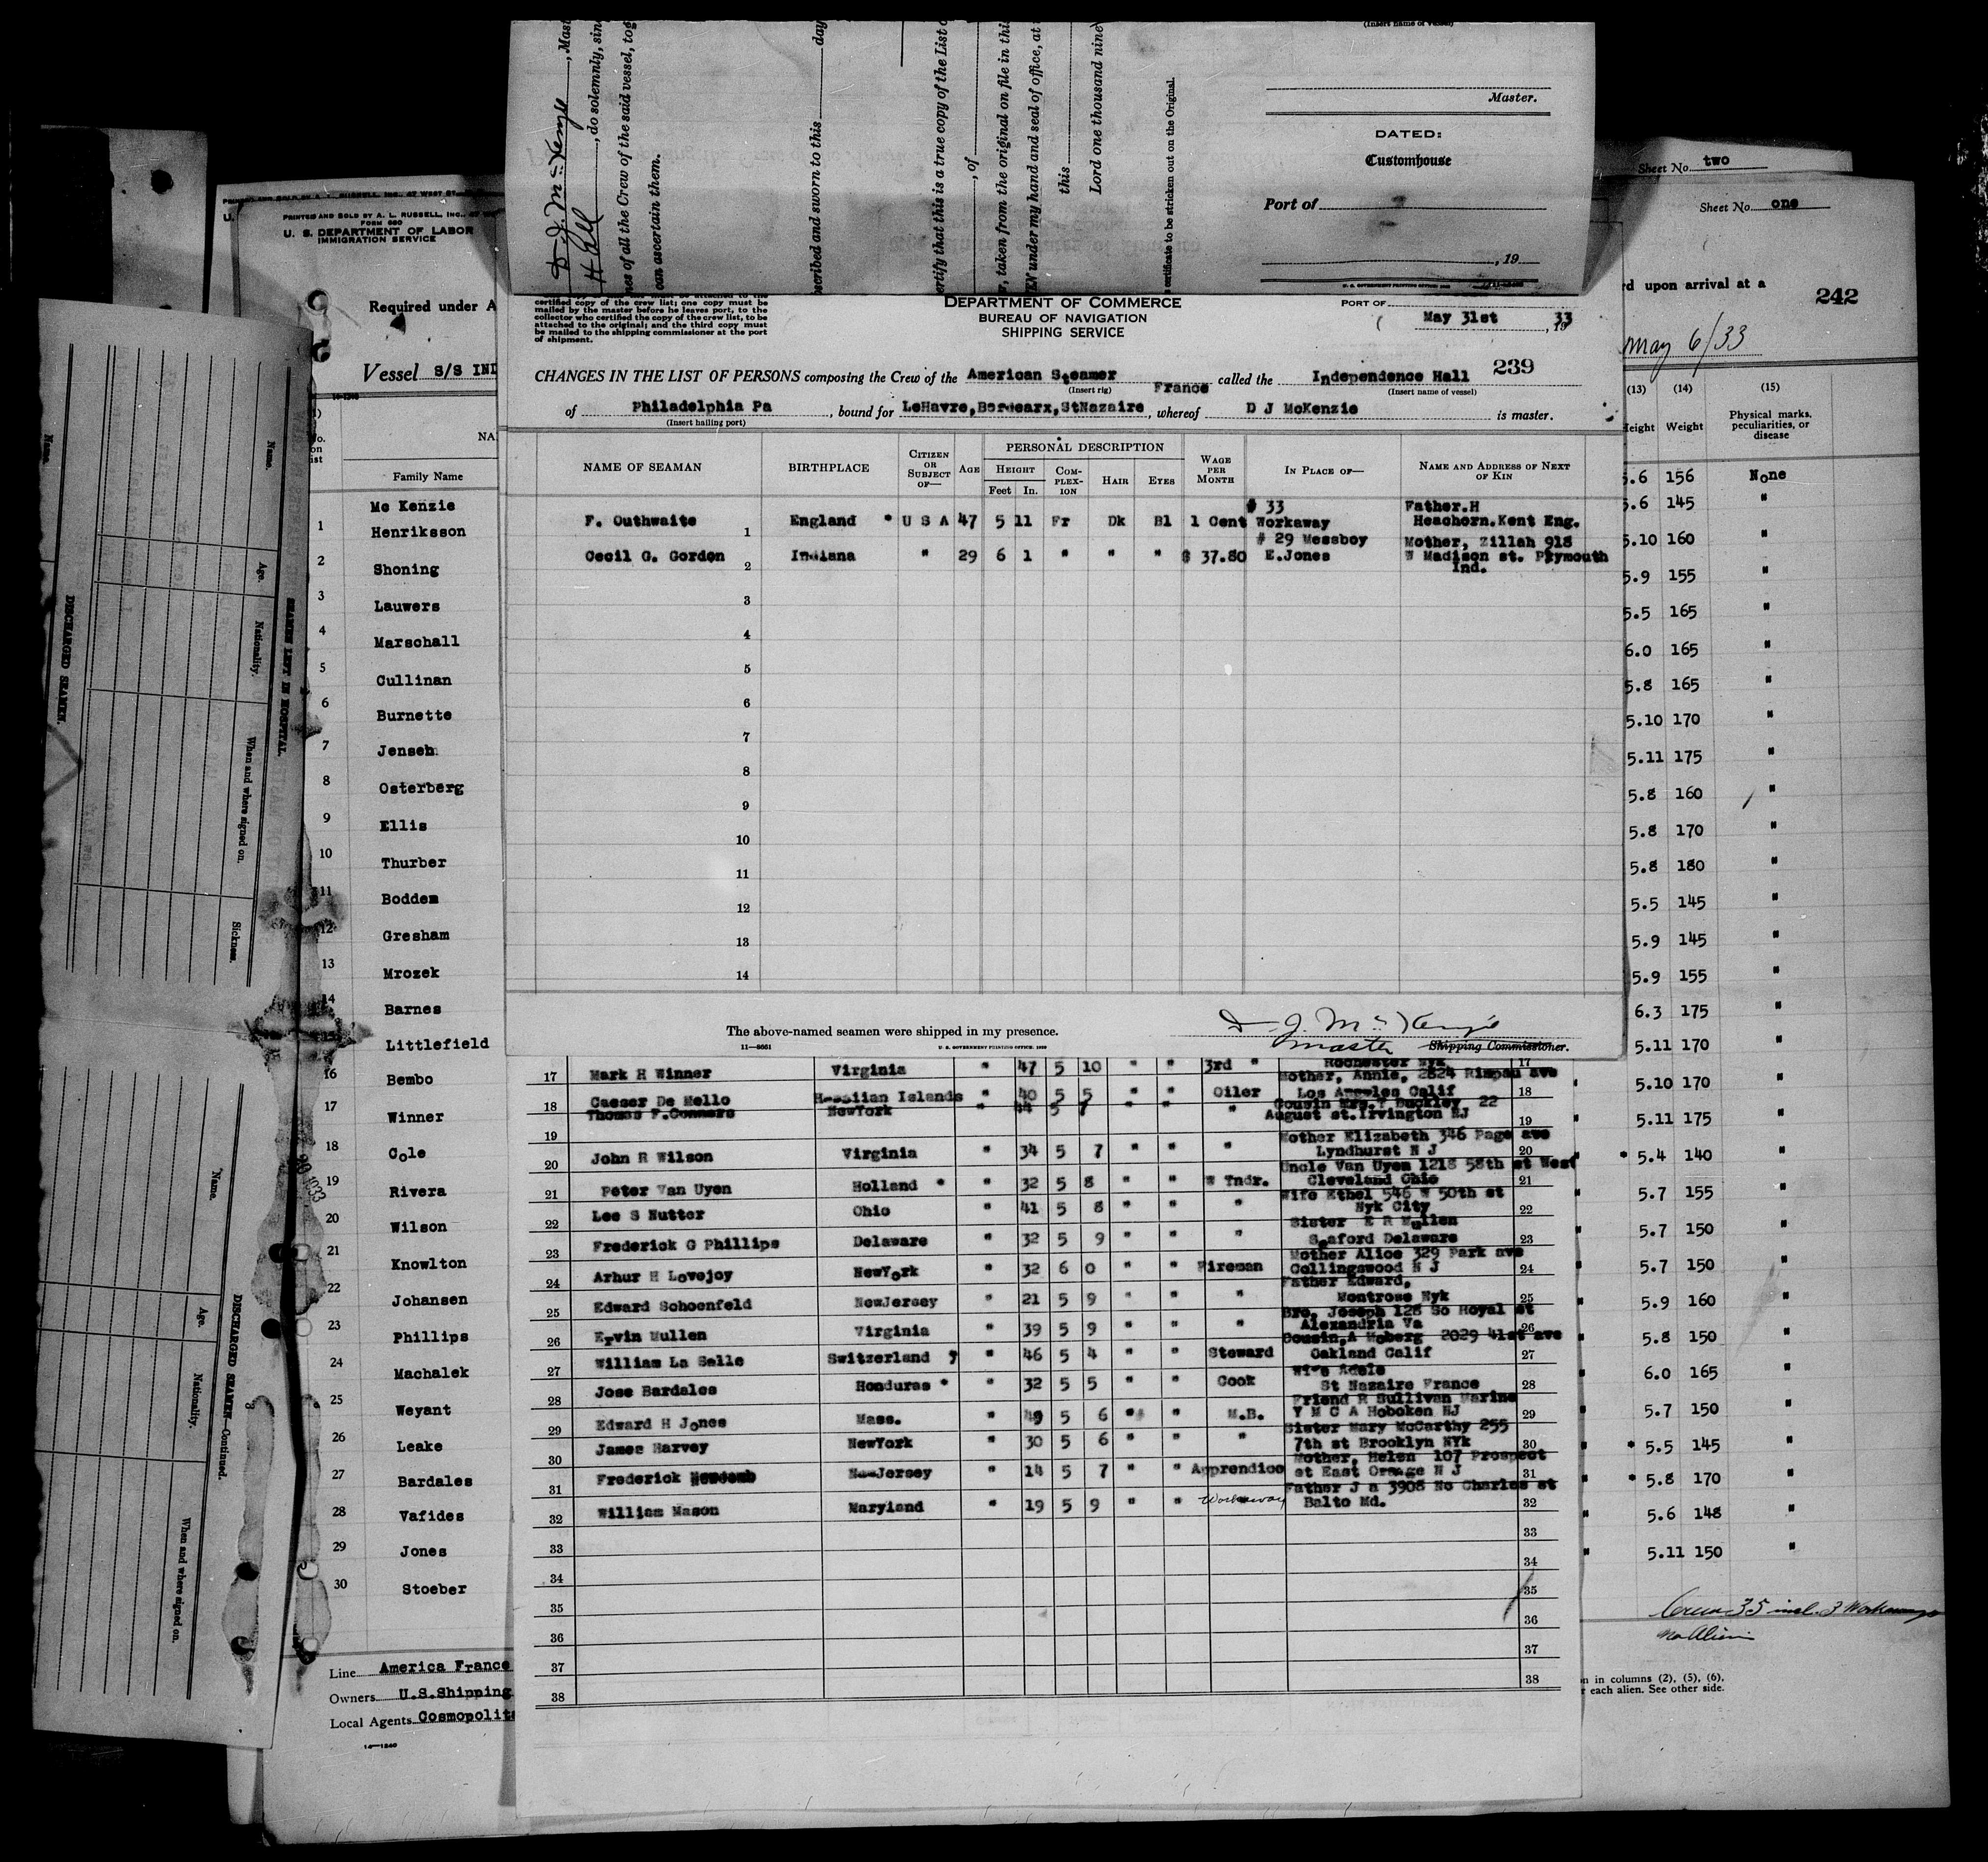 D. J. McKenzie, Mast
Hall, do solemnly, sin
nes of all the Crew of the said vessel, tog
can ascertain them.
scribed and sworn to this day
ertify that this is a true copy of the List o
, of
, taken from the original on file in this
EN under my hand and seal of office, at
this
Lord one thousand nine
certificate to be stricken out on the Original.
(Insert name of vessel)
Master.
DATED:
Customhouse
Port of
, 19
Sheet No. two
Sheet No. one
rd upon arrival at a
242
May 6/33
PRINTED AND SOLD BY A. L. RUSSELL, INC., 47 WEST ST.
PRINTED AND SOLD BY A. L. RUSSELL, INC.,
FORM 680
U. S. DEPARTMENT OF LABOR
IMMIGRATION SERVICE
Required under A
Vessel S/S IND
certified copy of the crew list; one copy must be
mailed by the master before he leaves port, to the
collector who certified the copy of the crew list, to be
attached to the original; and the third copy must
be mailed to the shipping commissioner at the port
of shipment.
DEPARTMENT OF COMMERCE
BUREAU OF NAVIGATION
SHIPPING SERVICE
PORT OF
May 31st, 1933
239
CHANGES IN THE LIST OF PERSONS composing the Crew of the American Steamer called the Independence Hall
(Insert rig) France (Insert name of vessel)
of Philadelphia Pa, bound for LeHavre,Bordearx,StNazaire, whereof D J McKenzie is master.
(Insert hailing port)
NAME OF SEAMAN BIRTHPLACE CITIZEN OR SUBJECT OF— AGE PERSONAL DESCRIPTION HEIGHT Feet In. COMPLEXION HAIR EYES WAGE PER MONTH IN PLACE OF— NAME AND ADDRESS OF NEXT OF KIN
# 33 Father.H
F. Outhwaite 1 England * U S A 47 5 11 Fr Dk Bl 1 Cent Workaway Heachorn.Kent Eng.
# 29 Messboy Mother, Zillah 918
Cecil G. Gordon 2 Indiana " 29 6 1 " " " $ 37.80 E.Jones W Madison st. Plymouth
Ind.
3
4
5
6
7
8
9
10
11
12
13
14
The above-named seamen were shipped in my presence.
D. J. McKenzie
master Shipping Commissioner.
11—8661 U. S. GOVERNMENT PRINTING OFFICE: 1929
17 Mark H Winner Virginia " 47 5 10 " " 3rd " Rochester Nyk 17
Mother, Annie, 2824 Rimpau ave
18 Caeser De Mello Hawaiian Islands " 40 5 5 " " Oiler Los Angeles Calif 18
Thomas F.Conners NewYork " 44 5 7 " " " Cousin Mrs.T Buckley 22
19 August st.Irvington NJ 19
Mother Elizabeth 346 Page ave
20 John R Wilson Virginia " 34 5 7 " " " Lyndhurst N J 20
Uncle Van Uyen 1218 58th st West
21 Peter Van Uyen Holland * " 32 5 8 " " W Tndr. Cleveland Ohio 21
Wife Ethel 546 W 50th st
22 Lee S Nutter Ohio " 41 5 8 " " " Nyk City 22
Sister E R Mullen
23 Frederick G Phillips Delaware " 32 5 9 " " " Seaford Delaware 23
Mother Alice 329 Park ave
24 Arhur H Lovejoy NewYork " 32 6 0 " " Fireman Collingswood N J 24
Father Edward,
25 Edward Schoenfeld NewJersey " 21 5 9 " " " Montrose Nyk 25
Bro, Joseph 128 So Royal st
26 Ervin Mullen Virginia " 39 5 9 " " " Alexandria Va 26
Cousin,A Moberg 2029 41st ave
27 William La Salle Switzerland " 46 5 4 " " Steward Oakland Calif 27
Wife Adele
28 Jose Bardales Honduras * " 32 5 5 " " Cook St Nazaire France 28
Friend R Sullivan Marine
29 Edward H Jones Mass. " 49 5 6 " " M.B. Y M C A Hoboken NJ 29
Sister Mary McCarthy 255
30 James Harvey NewYork " 30 5 6 " " " 7th st Brooklyn NYk 30
Mother, Helen 107 Prospect
31 Frederick Newcomb NewJersey " 14 5 7 " " Apprendice st East Orange N J 31
Father J a 3908 No Charles st
32 William Mason Maryland " 19 5 9 " " Workaway Balto Md. 32
33 33
34 34
35 35
36 36
37 37
38 38
Family Name
Mc Kenzie
1 Henriksson
2 Shoning
3 Lauwers
4 Marschall
5 Cullinan
6 Burnette
7 Jenseh
8 Osterberg
9 Ellis
10 Thurber
11 Bodden
12 Gresham
13 Mrozek
14 Barnes
Littlefield
16 Bembo
17 Winner
18 Cole
19 Rivera
20 Wilson
21 Knowlton
22 Johansen
23 Phillips
24 Machalek
25 Weyant
26 Leake
27 Bardales
28 Vafides
29 Jones
30 Stoeber
Line America France
Owners U.S.Shipping
Local Agents Cosmopolit
14—1240
(13) (14) (15)
Height Weight Physical marks, peculiarities, or disease
5.6 156 None
5.6 145 "
5.10 160 "
5.9 155 "
5.5 165 "
6.0 165 "
5.8 165 "
5.10 170 "
5.11 175 "
5.8 160 "
5.8 170 "
5.8 180 "
5.5 145 "
5.9 145 "
5.9 155 "
6.3 175 "
5.11 170 "
5.10 170 "
5.11 175 "
* 5.4 140 "
5.7 155 "
5.7 150 "
5.7 150 "
5.9 160 "
5.8 150 "
6.0 165 "
5.7 150 "
* 5.5 145 "
* 5.8 170 "
5.6 148 "
5.11 150 "
Crew 35 incl. 3 Workaways
No Aliens
n in columns (2), (5), (6),
r each alien. See other side.
SEAMEN LEFT IN HOSPITAL.
Name. Age. Nationality. When and where signed on. Sickness.
DISCHARGED SEAMEN.
Name.
DISCHARGED SEAMEN—Continued.
Name. Age. Nationality. When and where signed on.